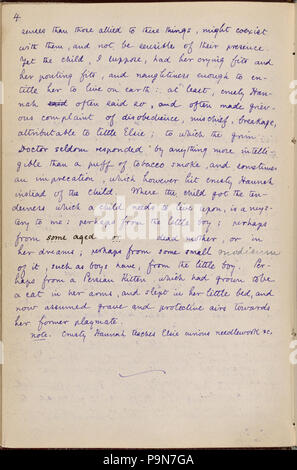 4.
senses than those allied to these things, might coexist
with them, and not be sensible of their presence.
Yet the child, I suppose, had her crying fits and
her pouting fits, and naughtiness enough to en-
title her to live on earth: at least, crusty Han-
nah said often said so, and often made griev-
ous complaint of disobedience, mischief, breakage,
attributable to little Elsie; to which the grim
Doctor seldom responded by anything more intelli-
gible than a puff of tobacco smoke, and sometimes
an imprecation, which however hit crusty Hannah
instead of the child. Where the child got the ten-
derness which a child needs to live upon, is a mys-
tery to me: perhaps from the little boy; perhaps
from some aged or dead mother, or in
her dreams; perhaps from some small modicum
of it, such as boys have, from the little boy. Per-
haps from a Persian kitten which had grown to be
a cat in her arms, and slept in her little bed, and
now assumed grave and protective airs towards
her former playmate.
note. Crusty Hannah teaches Elsie curious needlework &c.
alamy
P9N7GA